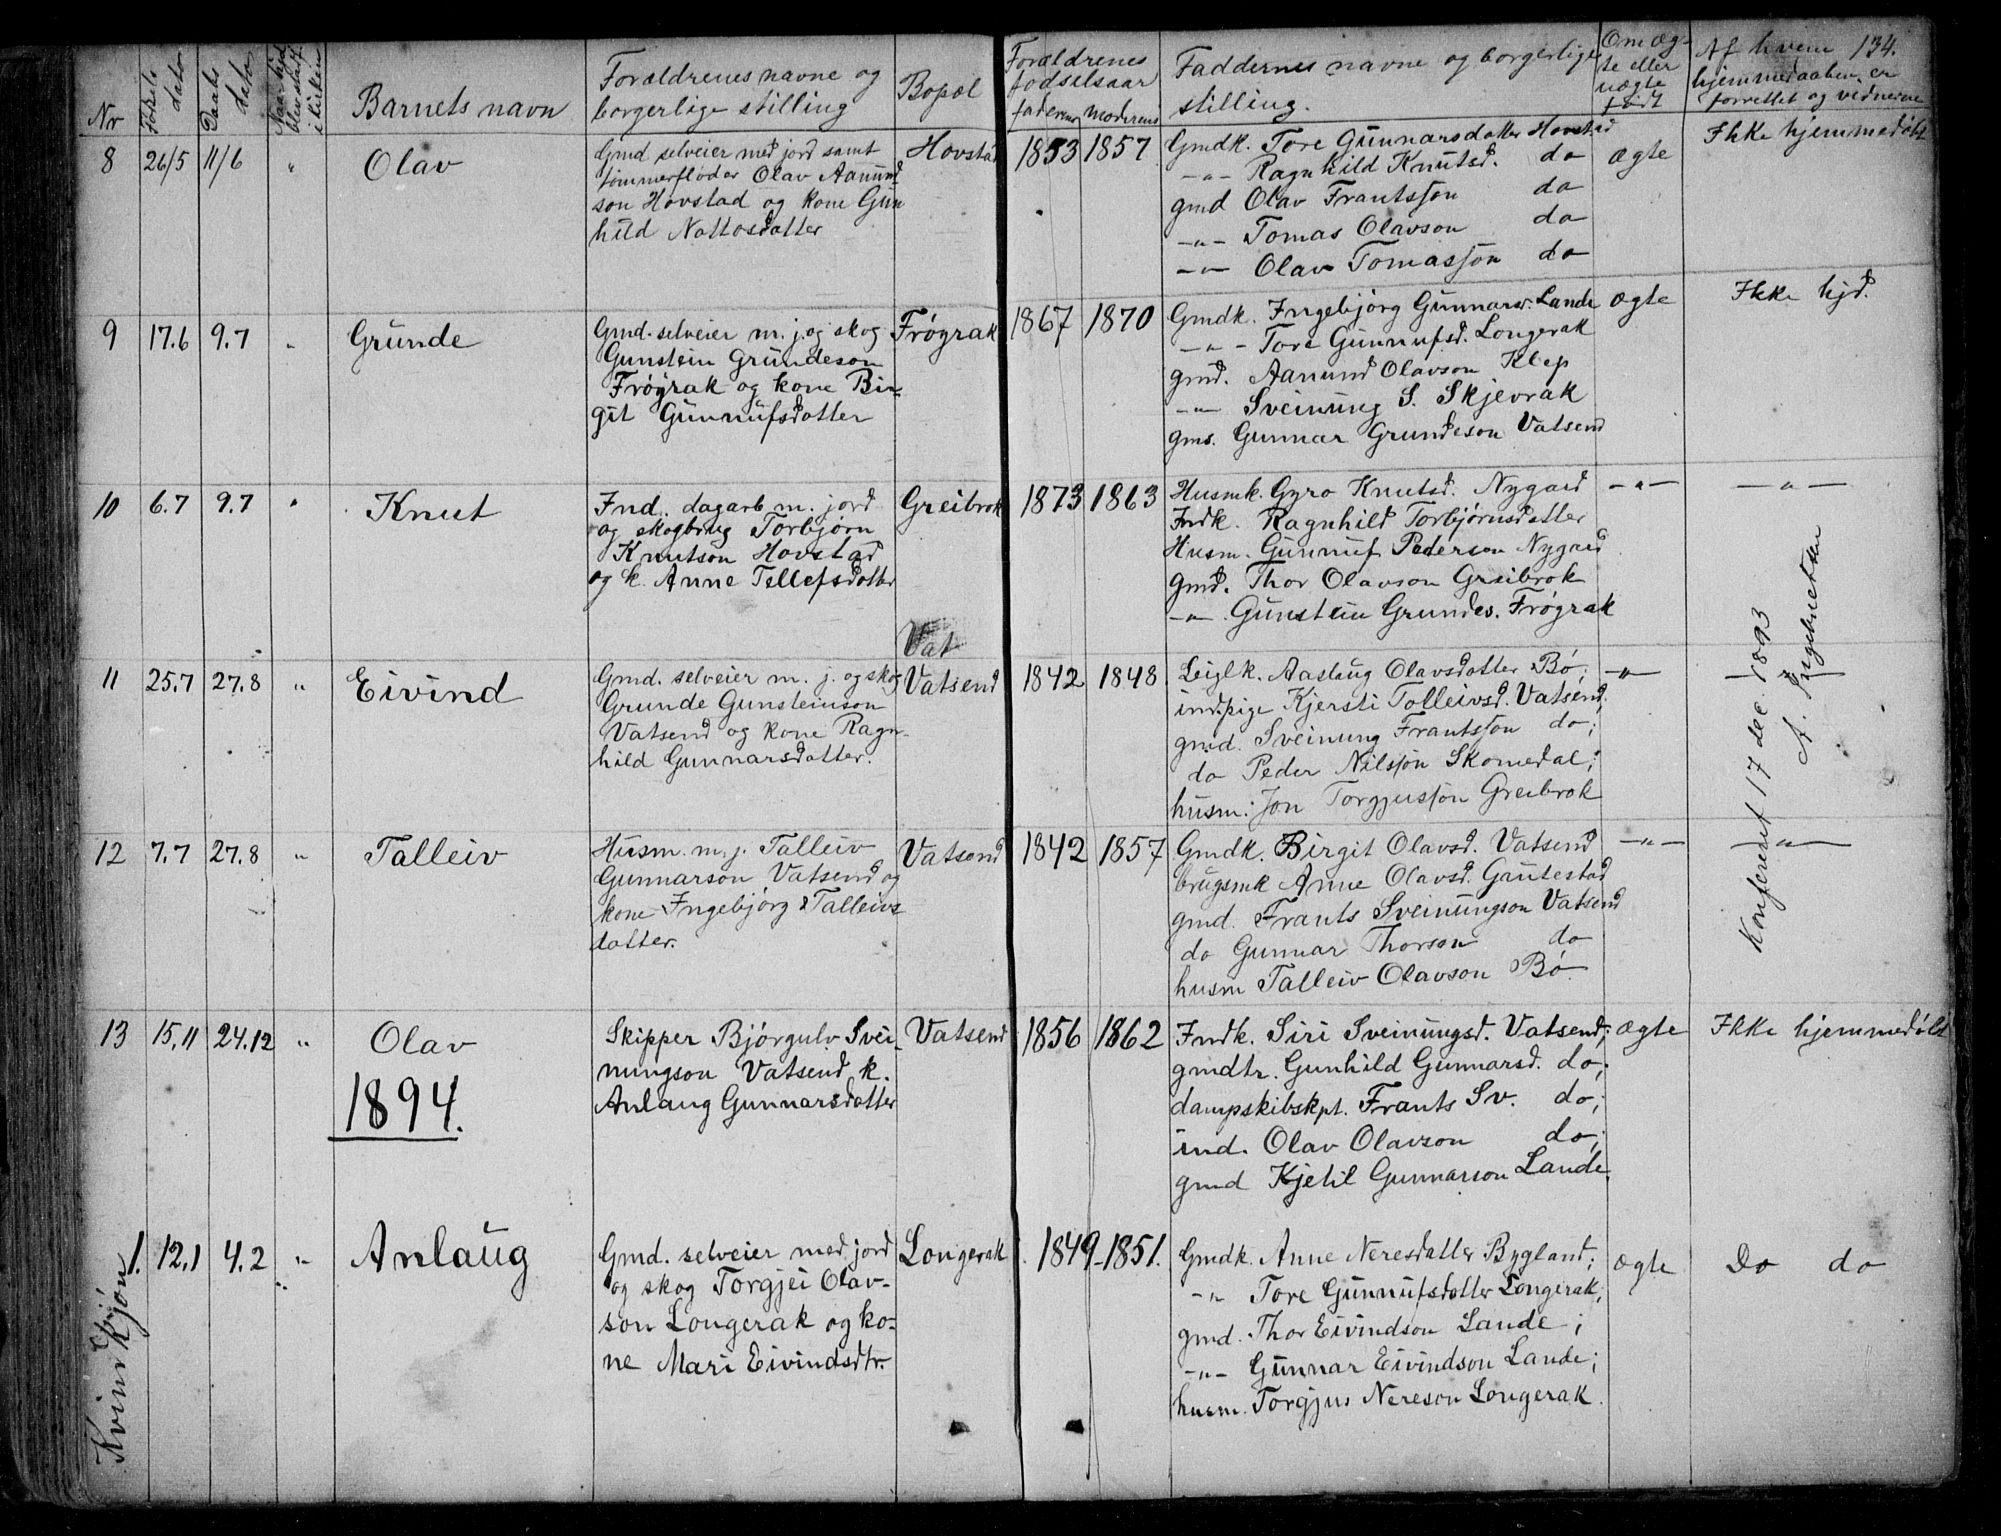 134.
Nr
Fødsels dato
Daabs dato
Barnets navn
Forældrenes navne og borgerlige stilling
Bopæl
Forældrenes fødselsaar
faderens moderens
Faddernes navne og borgerlige stilling.
Om ægte eller uægte født
Af hvem hjemmedaaben er forrettet og vidnerne
8 26/5 11/6 " Olav
Gmd selveier med jord samt
tømmerfløder Olav Aanund-
son Hovstad og kone Gun
hild Nottosdatter
Hovstad
1853 1857
Gmdk. Tore Gunnarsdatter Hovstad
-"- Ragnhild Knutsd. do
gmd Olav Frantsson do
-"- Tomas Olavson do
-"- Olav Tomasson do
ægte
Ikke hjemmedøbt
9 17.6 9.7 " Grunde
Gmd. selveier m. j. og skog
Gunstein Grundeson
Frøyrak og kone Bir-
git Gunnufsdatter
Frøyrak
1867 1870
Gmdk. Ingebjørg Gunnarsd. Lande
-"- Tore Gunnufsd. Longerak
gmd. Aanund Olavson Klep
-"- Sveinung S. Skjevrak
gms. Gunnar Grundeson Vatsend
ægte
Ikke hjd.
10 6.7 9.7 " Knut
Ind. dagarb m. jord
og skogbrug Torbjørn
Knutson Hovstad
og k. Anne Tellefsdatter
Greibrok
1873 1863
Husmk. Gyro Knutsd. Nygard
Indk. Ragnhild Torbjørnsdatter
Husm. Gunnuf Pederson Nygard
gmd. Thor Olavson Greibrok
-"- Gunstein Grundes. Frøyrak
-"-
-"-
Vat
11 25.7 27.8 " Eivind
Gmd. selveier m. j. og skog
Grunde Gunsteinson
Vatsend og kone Ragn-
hild Gunnarsdatter.
Vatsend
1842 1848
Leiglk. Aaslaug Olavsdatter Bø;
ind.pige Kjersti Tolleivsd. Vatsend.
gmd. Sveinung Frantsson do;
do Peder Nilsson Skomedal;
husm: Jon Torgjusson Greibrok
-"-
12 7.7 27.8 " Talleiv
Husm. m. j. Talleiv
Gunnarson Vatsend og
kone Ingebjørg Talleivs
datter.
Vatsend
1842 1857
Gmdk. Birgit Olavsd. Vatsend
brugsmk Anne Olavsd. Gautestad
gmd. Frants Sveinungson Vatsend
do Gunnar Thorson do
husm Talleiv Olavson Bø
-"-
-"-
Konfereret 17 dec. 1893
13 15.11 24.12 " Olav
Skipper Bjørgulv Svei-
nungson Vatsend k.
Anlaug Gunnarsdatter
Vatsend
1856 1862
Indk. Siri Sveinungsd. Vatsend;
gmdtr. Gunhild Gunnarsd. do;
dampskibskpt. Frants Sv. do;
ind. Olav Olavson do;
gmd Kjetil Gunnarson Lande
ægte
Ikke hjemmedøbt
1894.
Kvindkjøn
1. 12.1 4.2 " Anlaug
Gmd. selveier med jord
og skog Torgjei Olav-
son Longerak og ko-
ne Mari Eivindsdtr.
Longerak
1849 - 1851.
Gmdk. Anne Neresdatter Bygland;
-"- Tore Gunnufsdatter Longerak;
gmd. Thor Eivindson Lande;
-"- Gunnar Eivindson Lande;
husm. Torgjus Nereson Longerak.
ægte
Do do